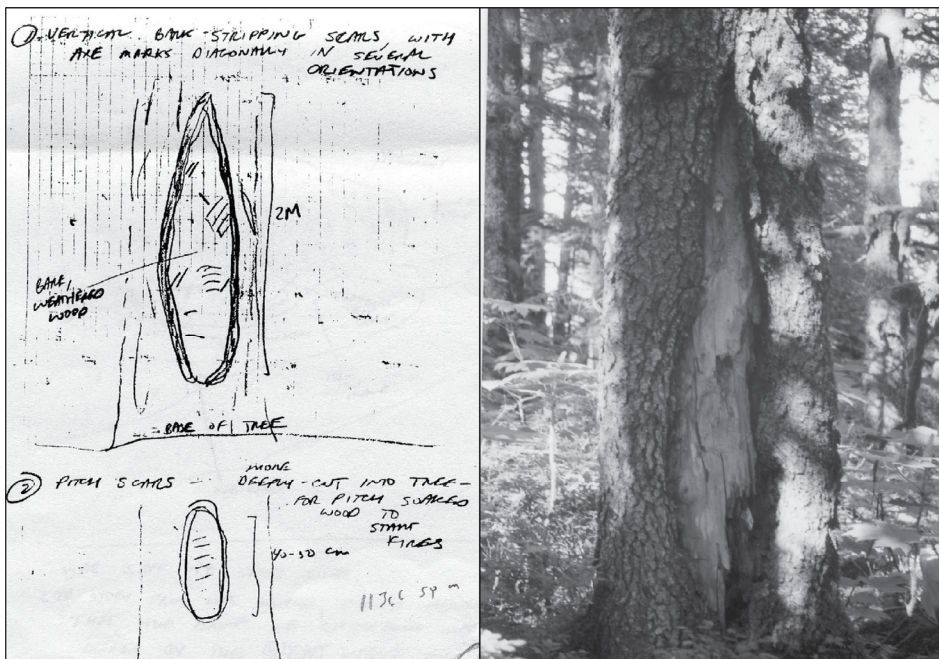 ① VERTICAL BARK-STRIPPING SCARS, WITH
AXE MARKS DIAGONALLY IN SEVERAL
ORIENTATIONS
2M
BARE,
WEATHERED
WOOD
BASE OF TREE
② PITCH SCARS - MORE
DEEPLY-CUT INTO TREE-
FOR PITCH SOAKED
WOOD TO
START
FIRES
40-50 cm